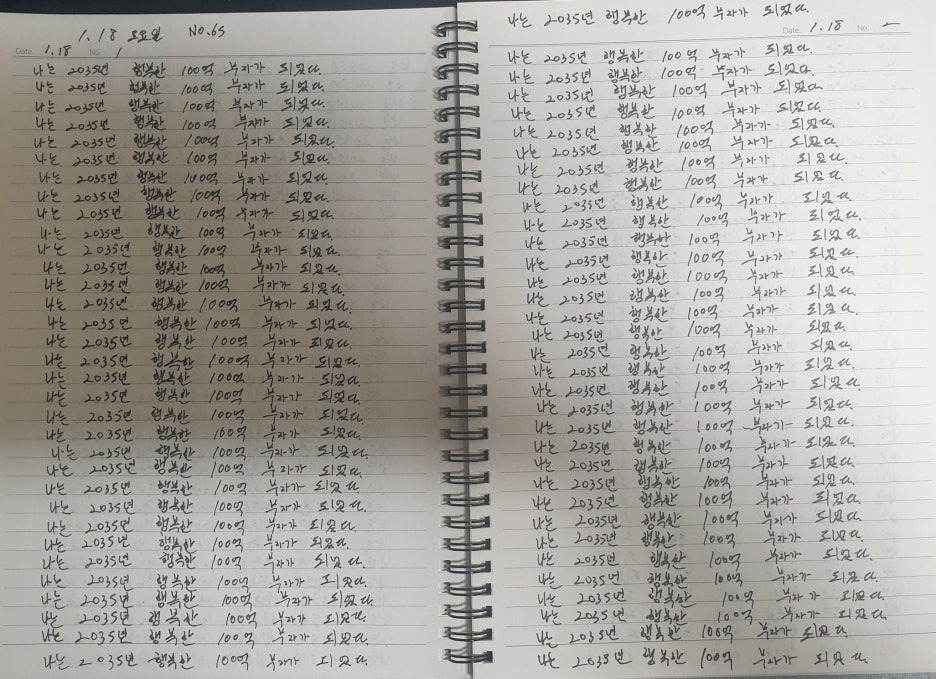 1.18 토요일 NO.65
Date. 1.18 No. 1
나는 2035년 행복한 100억 부자가 되었다.
나는 2035년 행복한 100억 부자가 되었다.
나는 2035년 행복한 100억 부자가 되었다.
나는 2035년 행복한 100억 부자가 되었다.
나는 2035년 행복한 100억 부자가 되었다.
나는 2035년 행복한 100억 부자가 되었다.
나는 2035년 행복한 100억 부자가 되었다.
나는 2035년 행복한 100억 부자가 되었다.
나는 2035년 행복한 100억 부자가 되었다.
나는 2035년 행복한 100억 부자가 되었다.
나는 2035년 행복한 100억 부자가 되었다.
나는 2035년 행복한 100억 부자가 되었다.
나는 2035년 행복한 100억 부자가 되었다.
나는 2035년 행복한 100억 부자가 되었다.
나는 2035년 행복한 100억 부자가 되었다.
나는 2035년 행복한 100억 부자가 되었다.
나는 2035년 행복한 100억 부자가 되었다.
나는 2035년 행복한 100억 부자가 되었다.
나는 2035년 행복한 100억 부자가 되었다.
나는 2035년 행복한 100억 부자가 되었다.
나는 2035년 행복한 100억 부자가 되었다.
나는 2035년 행복한 100억 부자가 되었다.
나는 2035년 행복한 100억 부자가 되었다.
나는 2035년 행복한 100억 부자가 되었다.
나는 2035년 행복한 100억 부자가 되었다.
나는 2035년 행복한 100억 부자가 되었다.
나는 2035년 행복한 100억 부자가 되었다.
나는 2035년 행복한 100억 부자가 되었다.
나는 2035년 행복한 100억 부자가 되었다.
나는 2035년 행복한 100억 부자가 되었다.
나는 2035년 행복한 100억 부자가 되었다.
나는 2035년 행복한 100억 부자가 되었다.
나는 2035년 행복한 100억 부자가 되었다.
나는 2035년 행복한 100억 부자가 되었다.
Date. 1.18 No.
나는 2035년 행복한 100억 부자가 되었다.
나는 2035년 행복한 100억 부자가 되었다.
나는 2035년 행복한 100억 부자가 되었다.
나는 2035년 행복한 100억 부자가 되었다.
나는 2035년 행복한 100억 부자가 되었다.
나는 2035년 행복한 100억 부자가 되었다.
나는 2035년 행복한 100억 부자가 되었다.
나는 2035년 행복한 100억 부자가 되었다.
나는 2035년 행복한 100억 부자가 되었다.
나는 2035년 행복한 100억 부자가 되었다.
나는 2035년 행복한 100억 부자가 되었다.
나는 2035년 행복한 100억 부자가 되었다.
나는 2035년 행복한 100억 부자가 되었다.
나는 2035년 행복한 100억 부자가 되었다.
나는 2035년 행복한 100억 부자가 되었다.
나는 2035년 행복한 100억 부자가 되었다.
나는 2035년 행복한 100억 부자가 되었다.
나는 2035년 행복한 100억 부자가 되었다.
나는 2035년 행복한 100억 부자가 되었다.
나는 2035년 행복한 100억 부자가 되었다.
나는 2035년 행복한 100억 부자가 되었다.
나는 2035년 행복한 100억 부자가 되었다.
나는 2035년 행복한 100억 부자가 되었다.
나는 2035년 행복한 100억 부자가 되었다.
나는 2035년 행복한 100억 부자가 되었다.
나는 2035년 행복한 100억 부자가 되었다.
나는 2035년 행복한 100억 부자가 되었다.
나는 2035년 행복한 100억 부자가 되었다.
나는 2035년 행복한 100억 부자가 되었다.
나는 2035년 행복한 100억 부자가 되었다.
나는 2035년 행복한 100억 부자가 되었다.
나는 2035년 행복한 100억 부자가 되었다.
나는 2035년 행복한 100억 부자가 되었다.